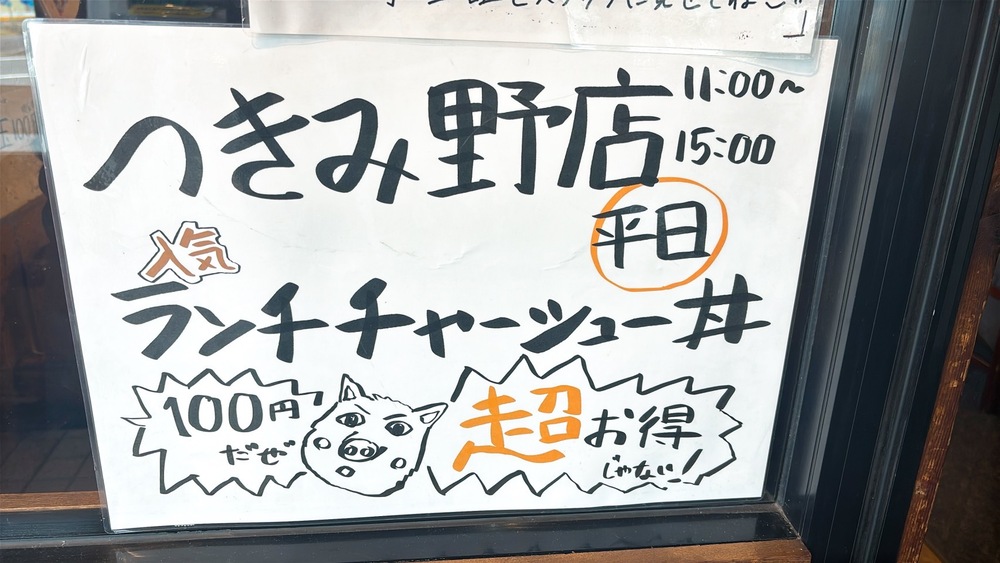 つきみ野店
11:00~
15:00
平日
人気
ランチチャーシュー丼
100円
だぜ
超お得
じゃない!